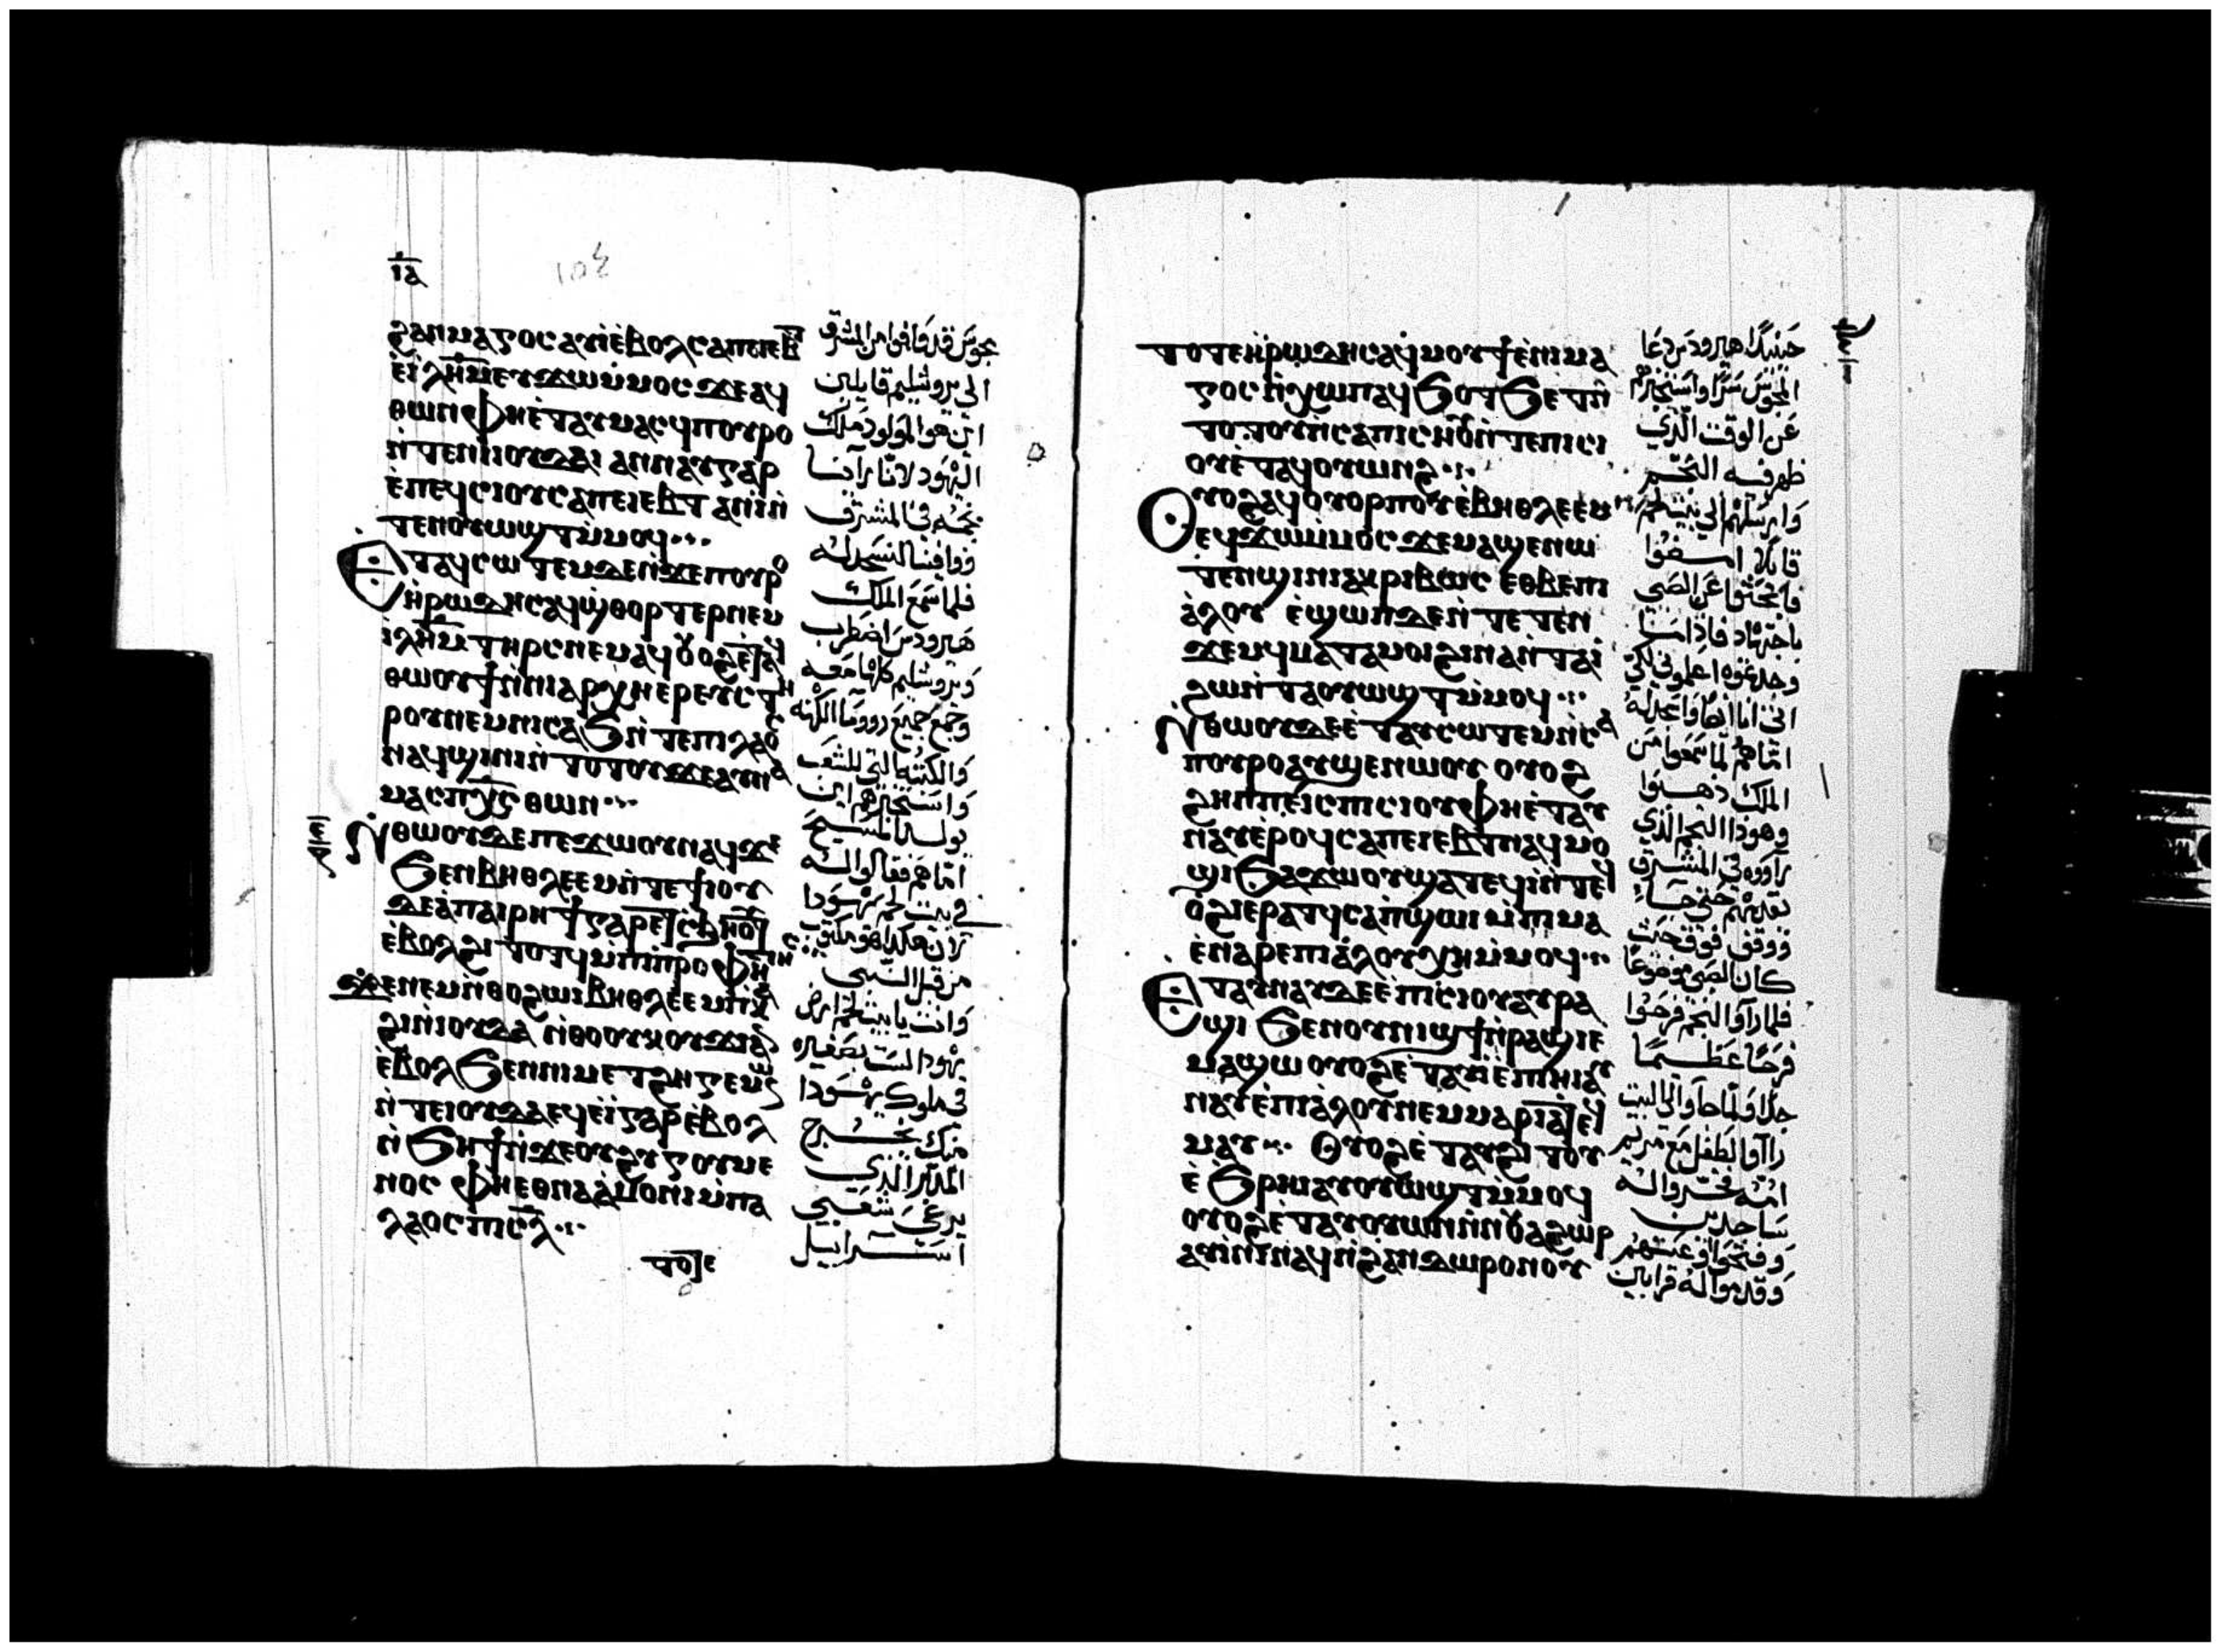 ⲓⲁ
ϩⲁⲛⲙⲁⲅⲟⲥ ⲁⲩⲓ̀ ⲉ̀ⲃⲟⲗ ⲥⲁⲡⲉⲓⲉⲃⲧ
ⲉ̀ⲓⲗ̅ⲏ̅ⲙ̅ ⲉⲩϫⲱ ⲙ̀ⲙⲟⲥ ϫⲉ ⲁϥ
ⲑⲱⲛ ⲫⲏⲉ̀ⲧⲁⲩⲙⲁⲥϥ ⲡⲟⲩⲣⲟ
ⲛ̀ⲧⲉ ⲛⲓⲟⲩⲇⲁⲓ ⲁⲛⲛⲁⲩ ⲅⲁⲣ
ⲉ̀ⲡⲉϥⲥⲓⲟⲩ ⲥⲁⲡⲉⲓⲉⲃⲧ ⲁⲛⲓ̀ ⲛ̀
ⲧⲉⲛⲟⲩⲱϣⲧ ⲙ̀ⲙⲟϥ
ⲉⲧⲁϥⲥⲱⲧⲉⲙ ⲇⲉ ⲛ̀ϫⲉ ⲡⲟⲩⲣⲟ
ⲏ̀ⲣⲱⲇⲏⲥ ⲁϥϣ̀ⲑⲟⲣⲧⲉⲣ ⲛⲉⲙ
ⲓⲗ̅ⲏ̅ⲙ̅ ⲧⲏⲣⲥ ⲛⲉⲙⲁϥ ⲟⲩⲟϩ ⲉ̀ⲧⲁϥ
ⲑⲱⲟⲩϯ ⲛ̀ⲛⲓⲁⲣⲭⲏⲉⲣⲉⲩⲥ ⲧⲏ
ⲣⲟⲩ ⲛⲉⲙ ⲛⲓⲥⲁϧ ⲛ̀ⲧⲉ ⲡⲓⲗⲁⲟⲥ
ⲛⲁϥϣⲓⲛⲓ ⲛ̀ⲧⲟⲧⲟⲩ ϫⲉ ⲁⲩⲛⲁ
ⲙⲁⲥ ⲡⲭ̅ⲥ̅ ⲑⲱⲛ
ⲛ̀ⲑⲱⲟⲩ ⲇⲉ ⲡⲉϫⲱⲟⲩ ⲛⲁϥ ϫⲉ
ϧⲉⲛ ⲃⲏⲑⲗⲉⲉⲙ ⲛ̀ⲧⲉ ϯⲓⲟⲩ
ⲇⲉⲁ ⲡⲁⲓⲣⲏϯ ⲅⲁⲣ ⲉⲧⲥϧⲏⲟⲩⲧ
ⲉ̀ⲃⲟⲗϩⲓⲧⲟⲧϥ ⲙ̀ⲡⲓⲡⲣⲟⲫⲏⲧⲏⲥ
ϫⲉ ⲛⲉⲙ ⲛ̀ⲑⲟ ϩⲱⲓ ⲃⲏⲑⲗⲉⲉⲙ ⲡ̀ⲕⲁ
ϩⲓ ⲛ̀ⲓⲟⲩⲇⲁ ⲛ̀ⲑⲟ ⲟⲩⲕⲟⲩϫⲓ ⲁⲛ
ⲉ̀ⲃⲟⲗ ϧⲉⲛ ⲛⲓⲙⲉⲧϩⲏⲅⲉⲙⲱⲛ
ⲛ̀ⲧⲉ ⲓⲟⲩⲇⲁ ⲉϥⲉ̀ⲓ̀ ⲅⲁⲣ ⲉ̀ⲃⲟⲗ
ⲛ̀ϧⲏϯ ⲛ̀ϫⲉ ⲟⲩϩⲩⲅⲟⲩⲙⲉ
ⲛⲟⲥ ⲫⲏⲉⲑⲛⲁⲁ̀ⲙⲟⲛⲓ ⲙ̀ⲡⲁ
ⲗⲁⲟⲥ ⲡⲓⲥ̅ⲗ̅
ⲧⲟⲧⲉ
مجوس قد وافوا من المشرق
الى يروشليم قايلين
اين هو المولود ملك
اليهود لاننا راينا
نجمه في المشرق
ووافينا لنسجد له
فلما سمع الملك
هيرودس اضطرب
ويروشليم كلها معه
وجمع جميع روسا الكهنه
والكتبه التي للشعب
واستخبرهم اين
يولد المسيح
اما هم فقالوا له
في بيت لحم يهودا
لان هكذا هو مكتوب
من قبل النبي
وانت يا بيت لحم ارض
يهودا لست بصغيره
في ملوك يهودا
منك يخرج
المدبر الذي
يرعى شعبي
اسرائيل
ⲧⲟⲧⲉ ⲏ̀ⲣⲱⲇⲏⲥ ⲁϥⲙⲟⲩϯ ⲉ̀ⲛⲓⲙⲁ
ⲅⲟⲥ ⲛ̀ⲭⲱⲡ ⲁϥϧⲟⲧϧⲉⲧ ⲛ̀
ⲧⲟⲧⲟⲩ ⲛ̀ⲥⲁ ⲡⲓⲥⲏⲟⲩ ⲛ̀ⲧⲉ ⲡⲓⲥⲓ
ⲟⲩ ⲉ̀ⲧⲁϥⲟⲩⲱⲛϩ
ⲟⲩⲟϩ ⲁϥⲟⲩⲟⲣⲡⲟⲩ ⲉ̀ⲃⲏⲑⲗⲉⲉⲙ
ⲉϥϫⲱ ⲙ̀ⲙⲟⲥ ϫⲉ ⲙⲁϣⲉⲛⲱ
ⲧⲉⲛ ϣⲓⲛⲓ ⲁⲕⲣⲓⲃⲱⲥ ⲉⲑⲃⲉ ⲡⲓ
ⲁ̀ⲗⲟⲩ ⲉ̀ϣⲱⲡ ⲇⲉ ⲛ̀ⲧⲉⲧⲉⲛ
ϫⲉⲙϥ ⲙⲁⲧⲁⲙⲟⲓ ϩⲓⲛⲁ ⲛ̀ⲧⲁⲓ̀
ϩⲱ ⲛ̀ⲧⲁⲟⲩⲱϣⲧ ⲙ̀ⲙⲟϥ
ⲛ̀ⲑⲱⲟⲩ ⲇⲉ ⲉ̀ⲧⲁⲩⲥⲱⲧⲉⲙ ⲛ̀ⲥⲁ
ⲡⲟⲩⲣⲟ ⲁⲩϣⲉⲛⲱⲟⲩ ⲟⲩⲟϩ
ϩⲏⲡⲡⲉ ⲓⲥ ⲡⲓⲥⲓⲟⲩ ⲫⲏⲉ̀ⲧⲁⲩ
ⲛⲁⲩ ⲉ̀ⲣⲟϥ ⲥⲁⲡⲉⲓⲉⲃⲧ ⲛⲁϥⲙⲟ
ϣⲓ ϧⲁϫⲱⲟⲩ ϣⲁⲧⲉϥⲓ̀ ⲛ̀ⲧⲉϥ
ⲟ̀ϩⲓ ⲉⲣⲁⲧϥ ⲥⲁⲡ̀ϣⲱⲓ ⲙ̀ⲡⲓⲙⲁ
ⲉ̀ⲛⲁⲣⲉ ⲡⲓⲁ̀ⲗⲟⲩ ⲭⲏ ⲙ̀ⲙⲟϥ
ⲉⲧⲁⲩⲛⲁⲩ ⲇⲉ ⲉ̀ⲡⲓⲥⲓⲟⲩ ⲁⲩⲣⲁ
ϣⲓ ϧⲉⲛ ⲟⲩⲛⲓϣϯ ⲛ̀ⲣⲁϣⲓ ⲉ
ⲙⲁϣⲱ ⲟⲩⲟϩ ⲉ̀ⲧⲁⲩⲓ̀ ⲉ̀ⲡⲓⲏⲓ ⲁⲩ
ⲛⲁⲩ ⲉ̀ⲡⲓⲁ̀ⲗⲟⲩ ⲛⲉⲙ ⲙⲁⲣⲓⲁ ⲧⲉϥ
ⲙⲁⲩ ⲟⲩⲟϩ ⲉ̀ⲧⲁⲩϩⲓⲧⲟⲩ
ⲉ̀ϧⲣⲏⲓ ⲁⲩⲟⲩⲱϣⲧ ⲙ̀ⲙⲟϥ
ⲟⲩⲟϩ ⲉ̀ⲧⲁⲩⲟⲩⲱⲛ ⲛ̀ⲛⲟⲩⲁϩⲱⲣ
ⲁⲩⲓ̀ⲛⲓ ⲛⲁϥ ⲛ̀ϩⲁⲛⲇⲱⲣⲟⲛ ⲟⲩ
حينيذ هيرودس دعا
المجوس سرا واستخبرهم
عن الوقت الذي
ظهر فيه النجم
وارسلهم الى بيت لحم
قايلا امضوا
فابحثوا عن الصبي
باجتهاد فاذا ما
وجدتموه اعلموني لكي
اتي انا ايضا واسجد له
اما هم لما سمعوا من
الملك ذهبوا
وهوذا النجم الذي
راوه في المشرق
تقدمهم حتى جاء
ووقف فوق حيث
كان الصبي موضوعا
فلما راوا النجم فرحوا
فرحا عظيما
جدا ولما جاوا الى البيت
راوا الطفل مع مريم
امه فخروا له
ساجدين
وفتحوا اوعيتهم
وقدموا له قرابين